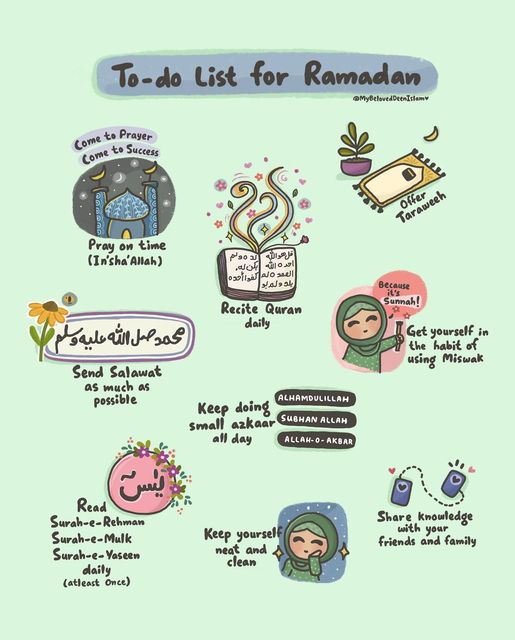 To-do List for Ramadan
@MyBelovedDeenIslam♥
Come to Prayer
Come to Success
Pray on time
(In'sha'Allah)
قل هو الله
احد ه الله
الصمد ه لم
يلد ولم يو
لد ه و لم
يكن له،
كفوا احده
Recite Quran
daily
Offer
Taraweeh
محمد صل الله عليه وسلم
Send Salawat
as much as
possible
Because
it's
Sunnah!
Get yourself in
the habit of
using Miswak
Keep doing
small azkaar
all day
ALHAMDULILLAH
SUBHAN ALLAH
ALLAH-O-AKBAR
يٰسٓ
Read
Surah-e-Rehman
Surah-e-Mulk
Surah-e-Yaseen
daily
(atleast Once)
Keep yourself
neat and
clean
Share knowledge
with your
friends and family